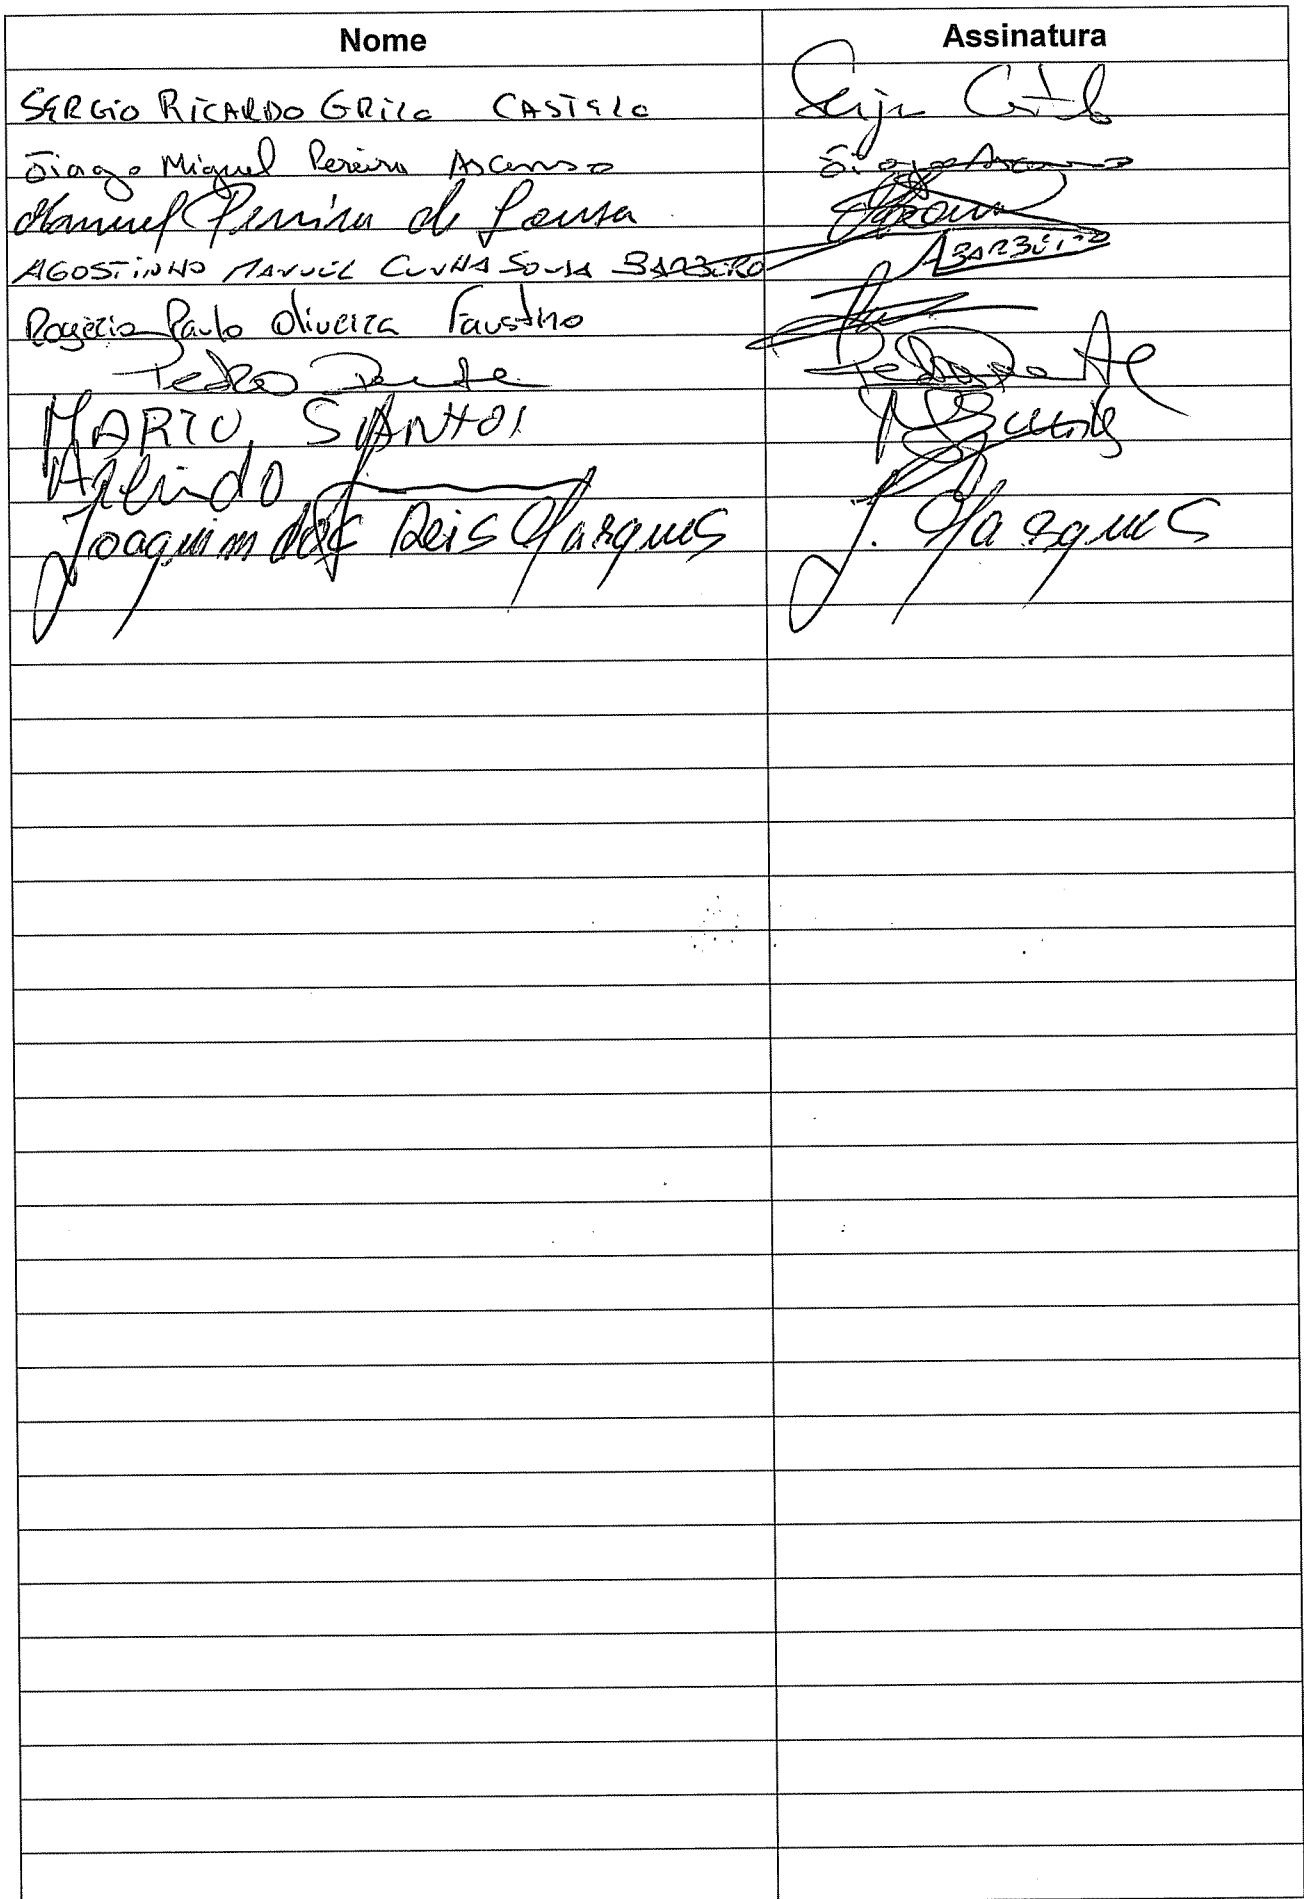 Nome Assinatura
SERGIO RICARDO GRILO CASTELO Sergio Castelo
Tiago Miguel Pereira Ascenso Tiago Ascenso
Manuel Ferreira de Sousa
AGOSTINHO MANUEL CUNHA SOUSA BARBEIRO A BARBEIRO
Rogério Paulo Oliveira Faustino
Pedro Duarte Pedro Duarte
MARIO SANTOS
Arlindo
Joaquim dos Reis Marques J. Marques